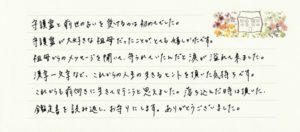 守護霊と前世の占いを受けるのは初めてでした。
守護霊が大好きな祖母だったことがとても嬉しかったです。
祖母からのメッセージを聞いて、守られていたんだと涙が溢れて来ました。
漢字一文字など、これからの人生の生きるヒントを頂いた気持ちです。
これからも前向きに生きて行こうと思えました。落ち込んだ時は頂いた
鑑定書を読み返し、お守りにします。ありがとうございました。